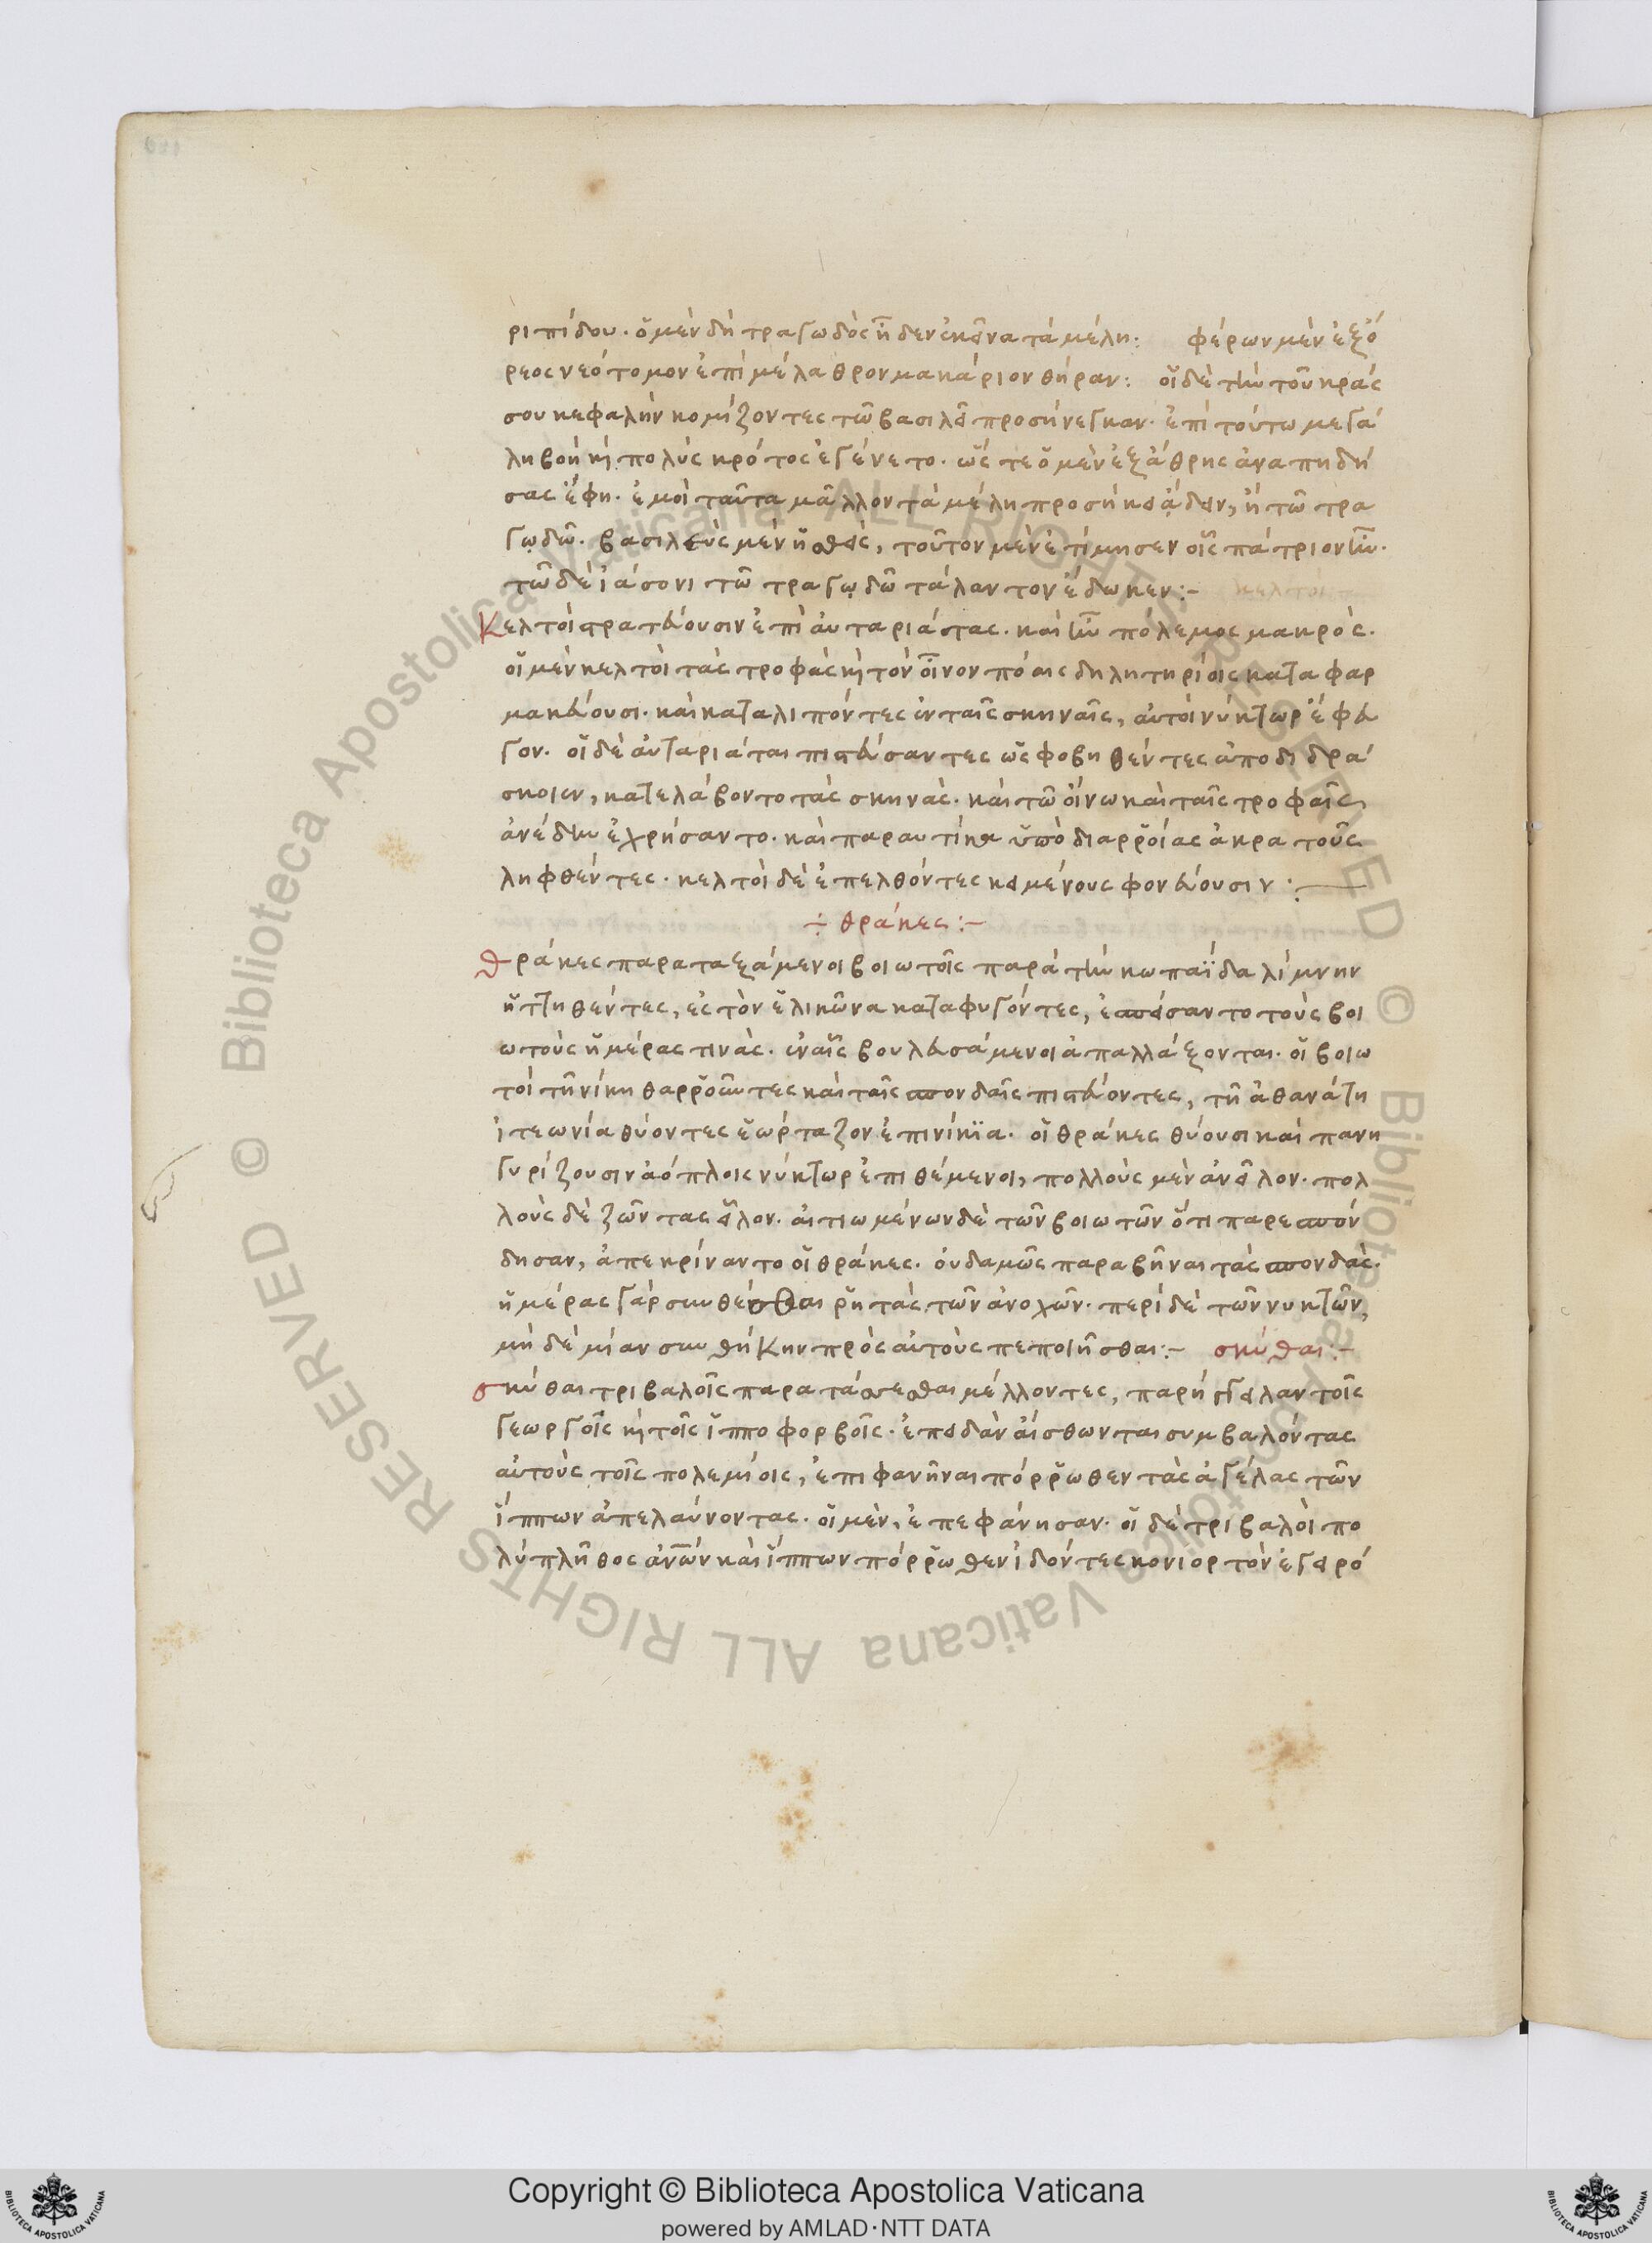 ριπίδου. ὁ μὲν δὴ τραγωδὸς ἦδεν ἐκεῖνα τὰ μέλη: φέρων μὲν ἐξ ὄ
ρεος νεότομον ἐπὶ μέλαθρον μακάριον θήραν: οἱ δὲ τὴν τοῦ κράς
σου κεφαλὴν κομίζοντες τῶ βασιλεῖ προσήνεγκαν. ἐπὶ τούτω μεγά
λη βοὴ καὶ πολὺς κρότος ἐγένετο. ὥς τε ὁ μὲν ἐξάθρης ἀναπηδή
σας ἔφη. ἐμοὶ ταῦτα μᾶλλον τὰ μέλη προσήκει ἄδειν, ἢ τῶ τρα
γῳδῶ. βασιλεὺς μὲν ἡσθεὶς, τοῦτον μὲν ἐτίμησεν οἷς πάτριον ἦν.
τῶ δὲ ἰάσονι τῶ τραγῳδῶ τάλαντον ἔδωκεν:-
Κελτοὶ στρατεύουσιν ἐπὶ ἀυταριάστας. καὶ ἦν πόλεμος μακρὸς.
οἱ μὲν κελτοὶ τὰς τροφὰς καὶ τὸν οἶνον πόαις δηλητηρίοις καταφαρ
μακεύουσι. καὶ καταλιπόντες ἐν ταῖς σκηναῖς, αὐτοὶ νύκτωρ ἔφευ
γον. οἱ δὲ ἀυταριάται πιστεύσαντες ὡς φοβηθέντες ἀποδιδρά
σκοιεν, κατελάβοντο τὰς σκηνὰς. καὶ τῶ οἴνω καὶ ταῖς τροφαῖς
ἀνέδην ἐχρήσαντο. καὶ παραυτίκα ὑπὸ διαρροίας ἀκρατοῦς
ληφθέντες. κελτοὶ δὲ ἐπελθόντες κειμένους φονεύουσιν:
÷ θράκες:-
Θράκες παραταξάμενοι βοιωτοῖς παρὰ τὴν κωπαΐδα λίμνην
ἡττηθέντες, ἐς τὸν ἑλικῶνα καταφυγόντες, ἐσπείσαντο τοὺς βοι
ωτοὺς ἡμέρας τινὰς. ἐν αἷς βουλευσάμενοι ἀπαλλάξονται. οἱ βοιω
τοὶ τῆ νίκη θαρροῦντες καὶ ταῖς σπονδαῖς πιστεύοντες, τῆ ἀθανάτη
ἰτεωνία θύοντες ἑώρταζον ἐπινίκϊα. οἱ θράκες θύουσι καὶ πανη
γυρίζουσιν ἀόπλοις νύκτωρ ἐπιθέμενοι, πολλοὺς μὲν ἀνεῖλον. πολ
λοὺς δὲ ζῶντας εἷλον. αἰτιωμένων δὲ τῶν βοιωτῶν ὅτι παρεσπόν
δησαν, ἀπεκρίναντο οἱ θράκες. ὀυδαμῶς παραβῆναι τὰς σπονδὰς.
ἡμέρας γὰρ συνθέσθαι ῥητὰς τῶν ἀνοχῶν. περὶ δὲ τῶν νυκτῶν,
μὴ δὲ μίαν συνθήκην πρὸς αὐτοὺς πεποιῆσθαι:- σκύθαι:-
σκύθαι τριβαλοῖς παρατάσσεσθαι μέλλοντες, παρήγγειλαν τοῖς
γεωργοῖς καὶ τοῖς ἱπποφορβοῖς. ἐπειδὰν ἀίσθωνται συμβαλόντας
αὐτοὺς τοῖς πολεμίοις, ἐπιφανῆναι πόρρωθεν τὰς ἀγέλας τῶν
ἵππων ἀπελαύνοντας. οἱ μὲν, ἐπεφάνησαν. οἱ δὲ τριβαλοὶ πο
λὺ πλῆθος ἀνων καὶ ἵππων πόρρωθεν ἰδόντες κονιορτὸν ἐγειρό
© Biblioteca Apostolica Vaticana ALL RIGHTS RESERVED © Biblioteca Apostolica Vaticana ALL RIGHTS RESERVED
Copyright © Biblioteca Apostolica Vaticana
powered by AMLAD·NTT DATA
BIBLIOTECA APOSTOLICA VATICANA
BIBLIOTECA APOSTOLICA VATICANA